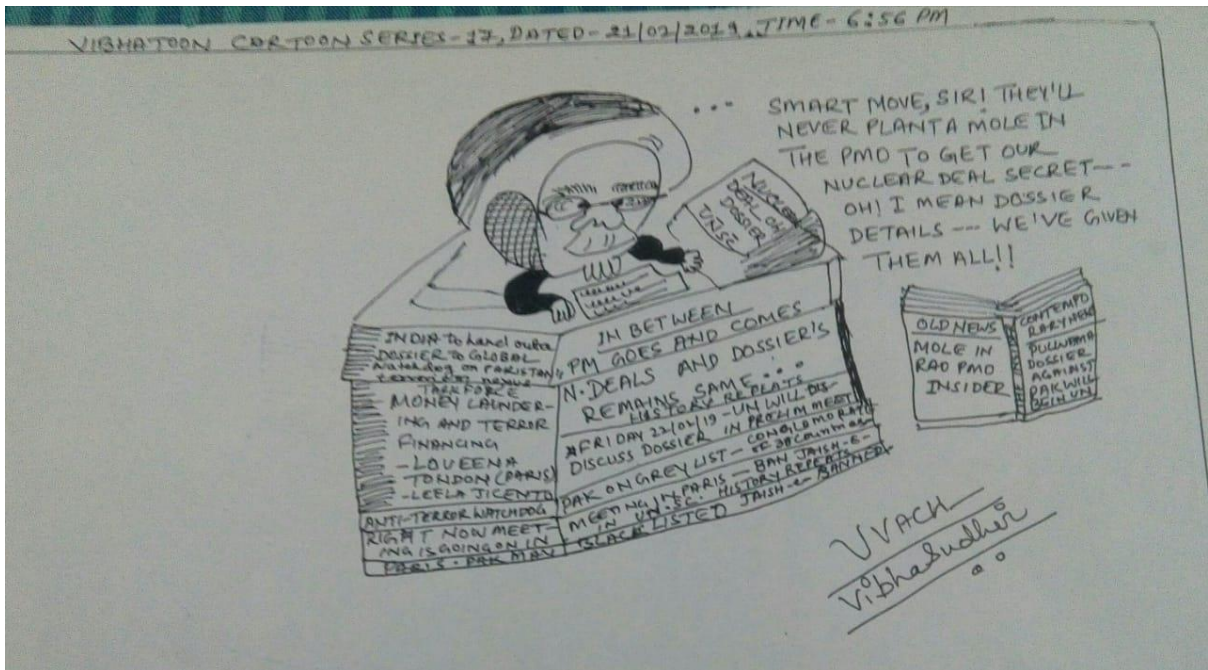 VIBHATOON CARTOON SERIES-17, DATED-21/02/2019, TIME-6:56 PM
... SMART MOVE, SIR! THEY'LL
NEVER PLANT A MOLE IN
THE PMO TO GET OUR
NUCLEAR DEAL SECRET---
OH! I MEAN DOSSIER
DETAILS --- WE'VE GIVEN
THEM ALL!!
NUCLEAR
DEAL OH
DOSSIER
INDIA to hand out a
DOSSIER to GLOBAL
Watchdog on PAKISTAN's
nexus
TASKFORCE
MONEY LAUNDER-
ING AND TERROR
FINANCING
-LOVEENA
TONDON (PARIS)
-LEELA JICENTO
ANTI-TERROR WATCHDOG
RIGHT NOW MEET-
ING IS GOING ON IN
PARIS. PAK MAY
IN BETWEEN
PM GOES AND COMES
N.DEALS AND DOSSIER'S
REMAINS SAME...
HISTORY REPEATS
#FRIDAY 22/02/19-UN WILL DIS-
DISCUSS DOSSIER IN MEET
PAK ON GREY LIST- OF 38 Countries
MEETING IN PARIS - BAN JAISH-E-
IN UN.SC. HISTORY REPEATS
BLACKLISTED JAISH-e- BANNED
OLD NEWS
MOLE IN
RAO PMO
INSIDER
CONTEMPO
RARY NEWS
PULWAMA
DOSSIER
AGAINST
PAK WILL
BE IN UN
UVACH
VibhaSudhir